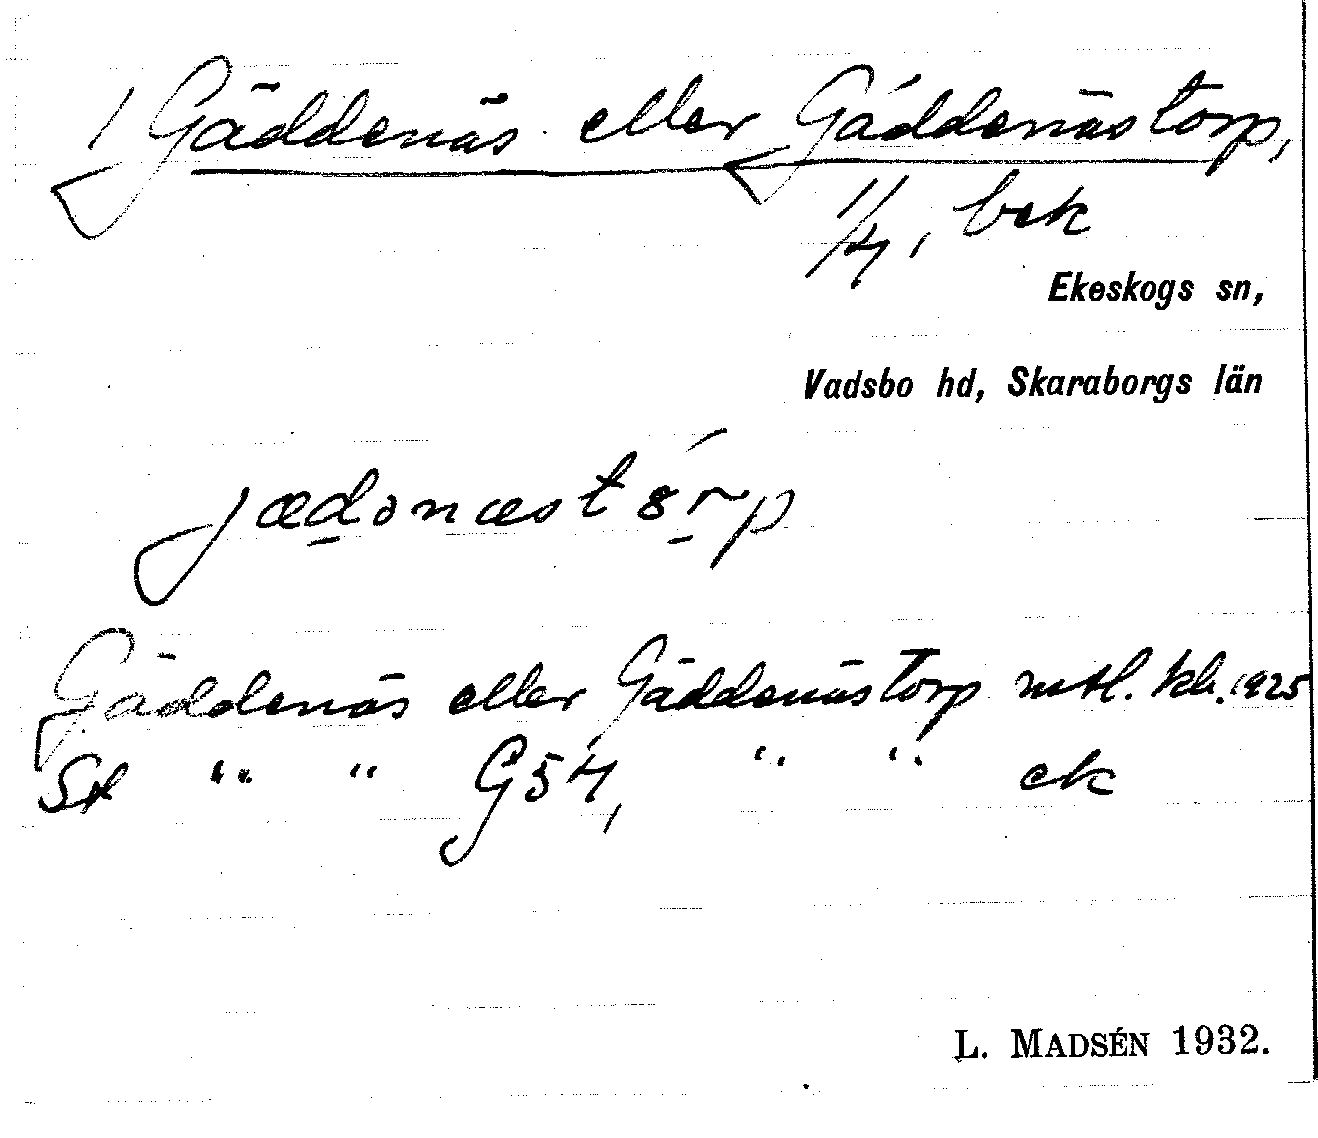 1 Gäddenäs eller Gäddenästorp,
1/4, bek
Ekeskogs sn,
Vadsbo hd, Skaraborgs län
jædənæstórp
Gäddenäs eller Gäddenästorp mtl. kb. 1925
St " " G54, " " ek
L. MADSÉN 1932.